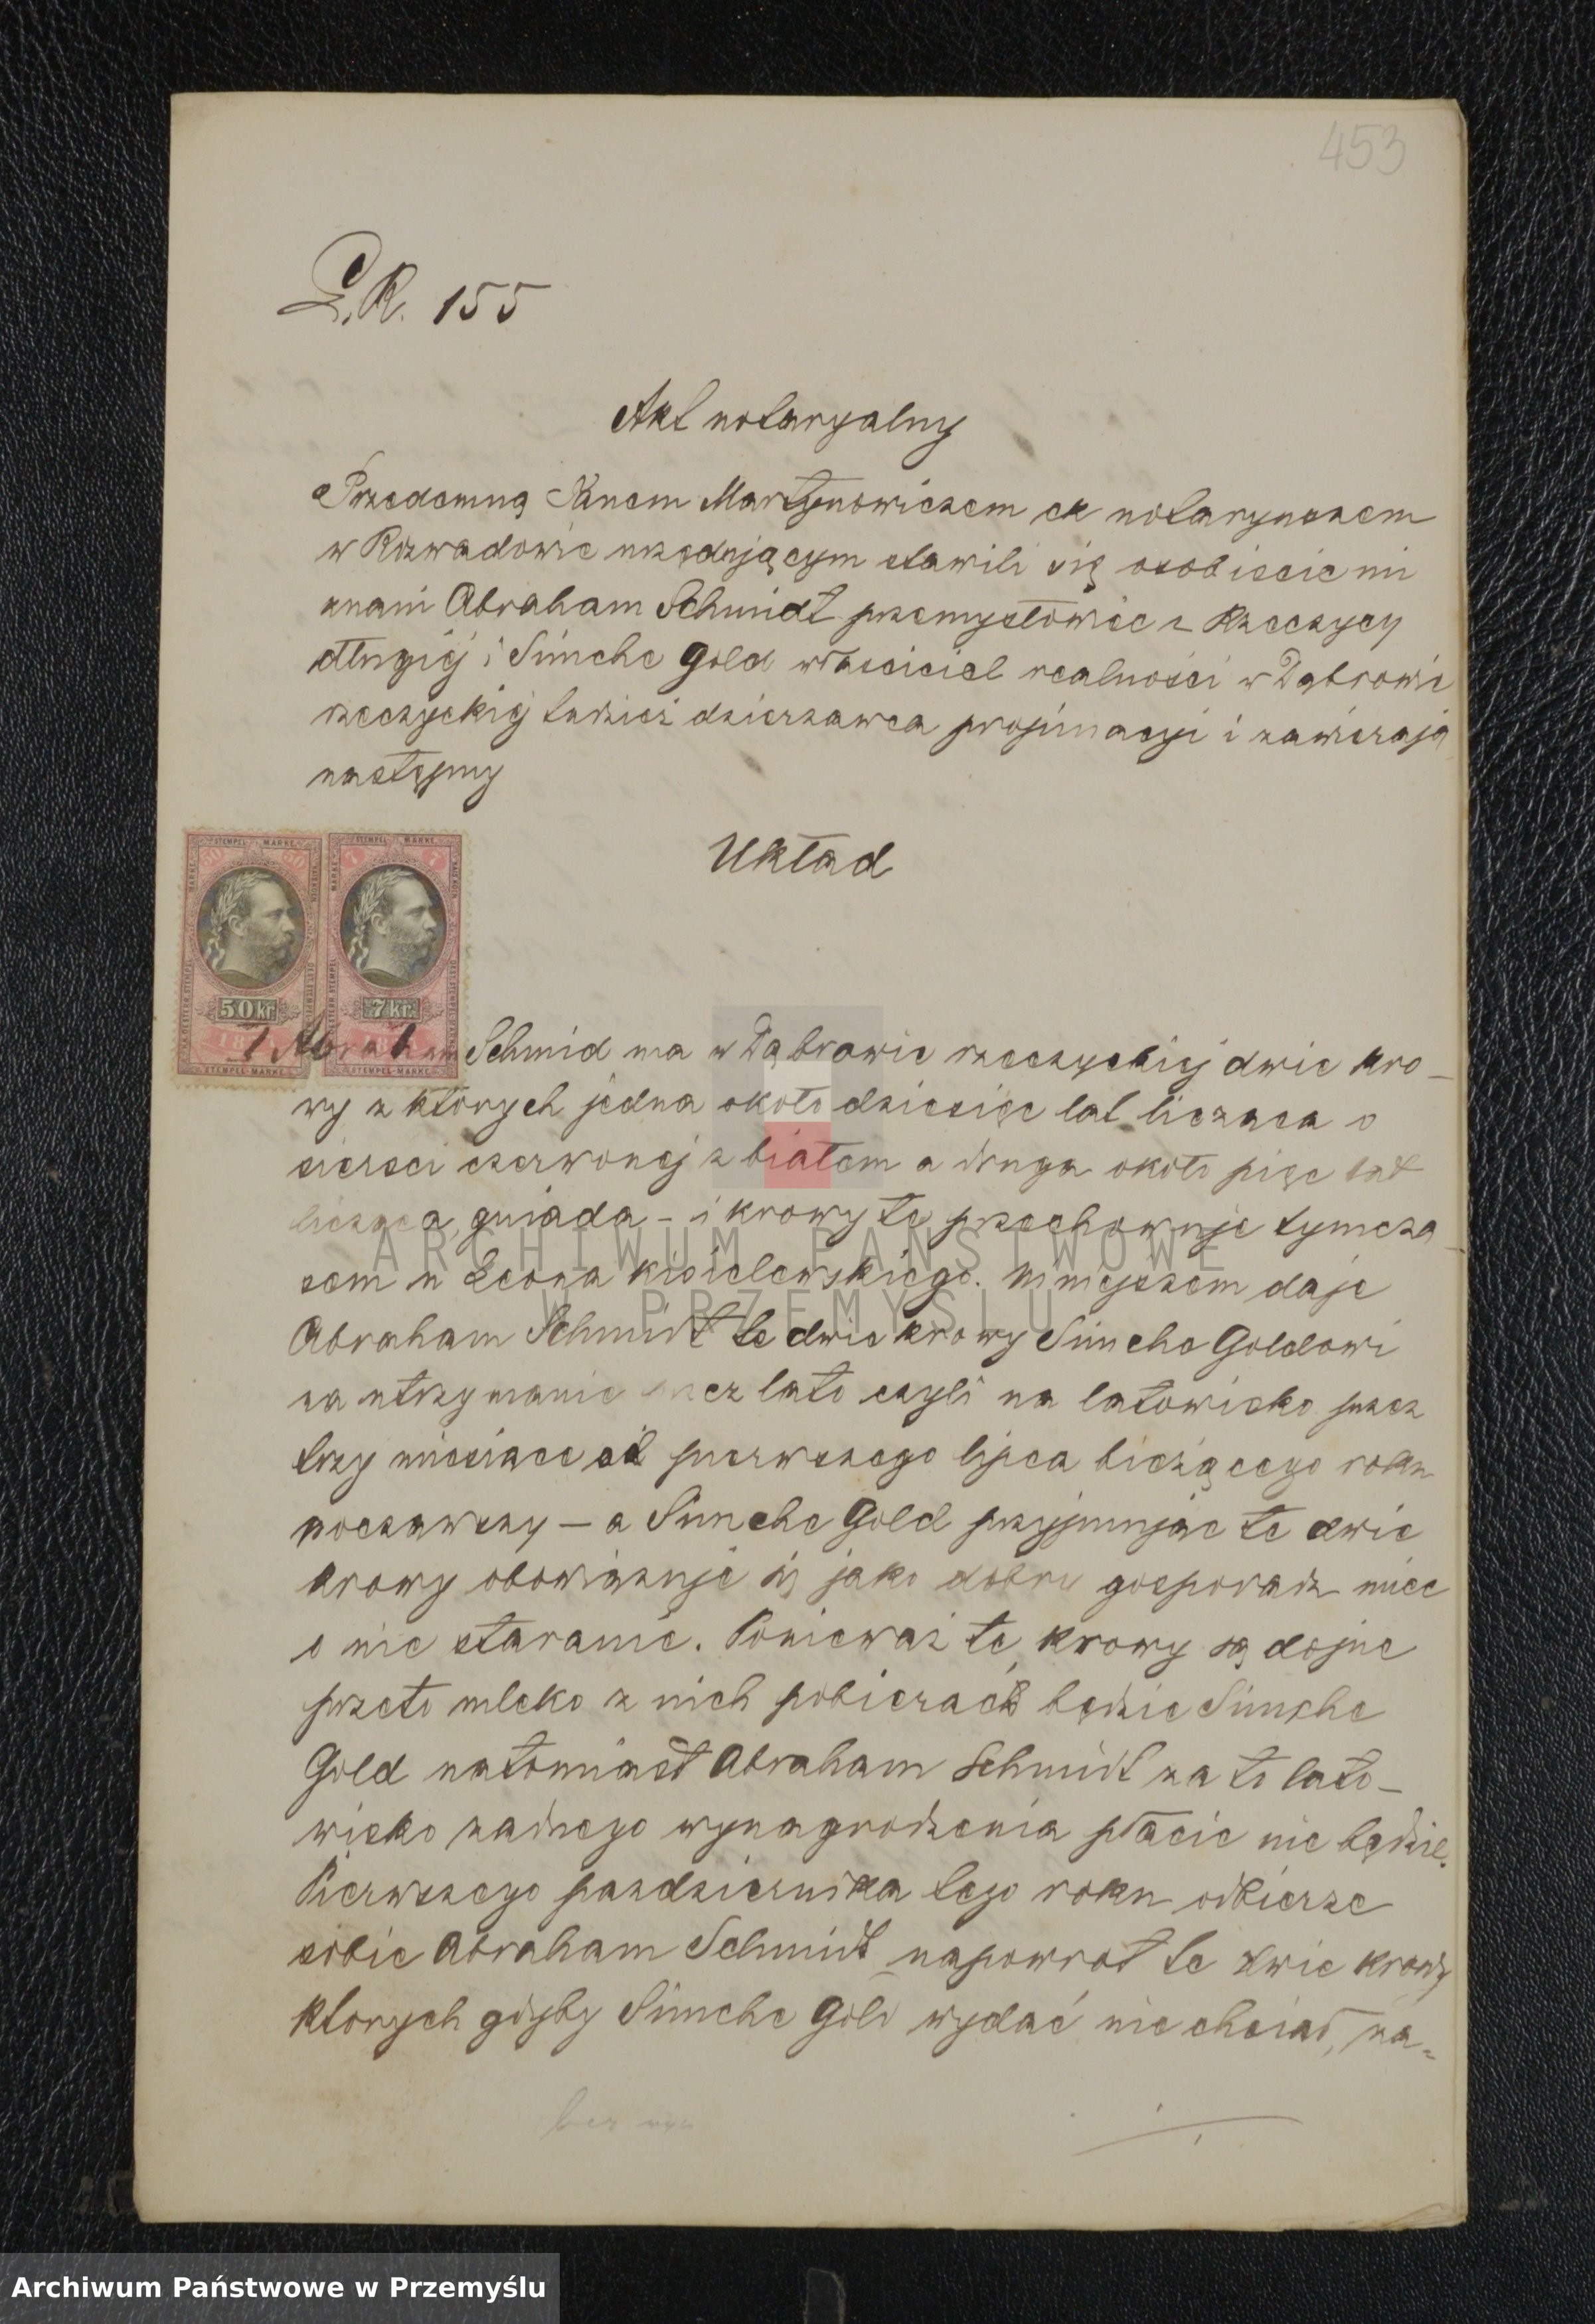 453
L.R. 155
Akt notaryalny
Przedemną Janem Martynowiczem ck notaryuszem
w Rozwadowie urzędującym stawili się osobiscie mi
znani Abraham Schmidt przemysłowiec z Rzeczycy
długiéj i Simche Gold własciciel realności w Dąbrowie
rzeczyckiéj tudzież dzierzawca propinacyi i zawierają
następny
Układ
STEMPEL MARKE STEMPEL MARKE
50 kr. 7 kr.
STEMPEL-MARKE STEMPEL-MARKE
1 Abraham Schmid ma w Dąbrowie rzeczyckiéj dwie kro-
wy z których jedna około dziesięc lat licząca o
siersci czerwonej z białem a druga około pięc lat
licząca, gniada – i krowy te przechowuje tymcza
sem u Leona Kisielewskiego. Niniejszem daje
Abraham Schmidt te dwie krowy Simche Goldowi
na utrzymanie przez lato czyli na latowisko przez
trzy miesiące od pierwszego lipca bieżącego roku
począwszy – a Simche Gold przyjmując te dwie
krowy obowiązuje się jako dobry gospodarz miec
o nie staranie. Ponieważ te krowy są dojne
przeto mleko z nich pobierać będzie Simche
Gold natomiast Abraham Schmidt za to lato-
wisko zadnego wynagrodzenia płacic nie będzie.
Pierwszego pazdziernika tego roku odbierze
sobie Abraham Schmidt napowrot te dwie krowy
ktorych gdyby Simche Gold wydać nie chciał, na-
ARCHIWUM PAŃSTWOWE
W PRZEMYŚLU
Archiwum Państwowe w Przemyślu